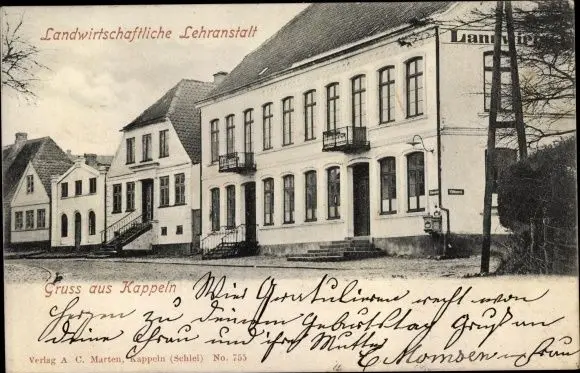 Landwirtschaftliche Lehranstalt
Landwirt
Gruss aus Kappeln
Wir Gratulieren recht von
Herzen zu deinem Geburtstag Gruß an
deine Frau und ihre Mutter
C Momsen u Frau
Verlag A. C. Marten, Kappeln (Schlei) No. 755